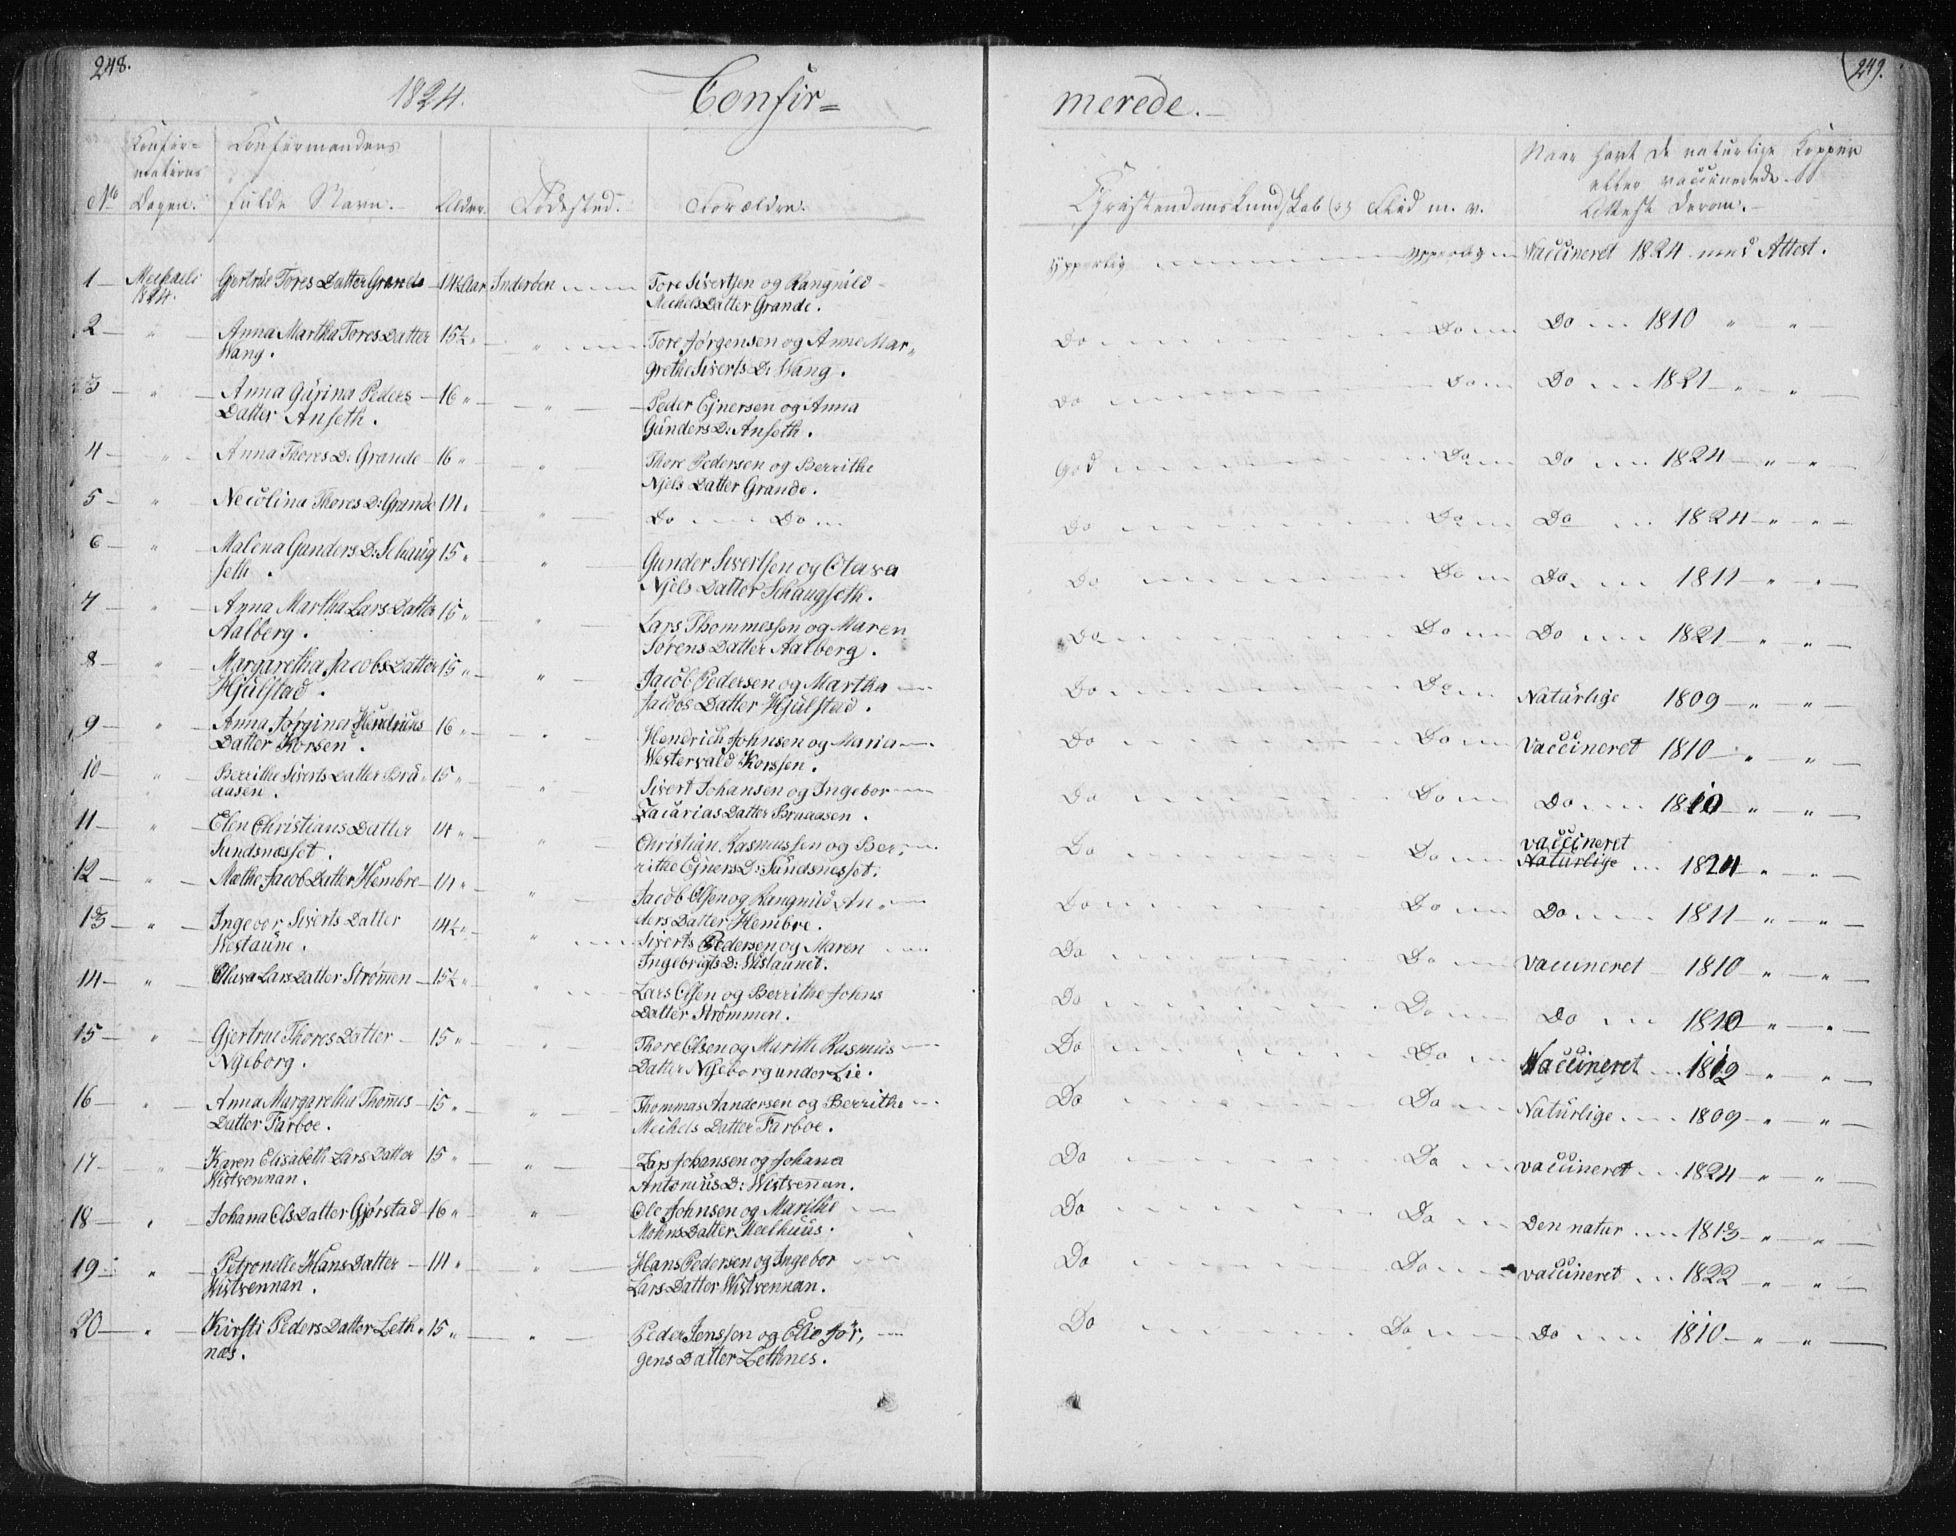 248.
249.
1824.
Confir=
merede.
Confir=
mations
Dagen.
No
Confirmandens
fulde Navn.
Alder.
Fødested.
Forældre.
Christendomskundskab og Flid m. v.
Naar havt de naturlige Kopper
eller vaccinerede.
Attest derom.
1 Michaeli 1824. Gjertrue Tores Datter Grande 14½ Aar Inderøen Tore Sivertsen og Rangnild Ypperlig Ypperlig Vaccineret 1824 med Attest.
Michels Datter Grande.
2 " Anna Martha Tores Datter 15½ " " Tore Jørgensen og Anne Mar" Do Do Do 1810 " "
Wang. grethe Siverts D: Wang.
3 " Anna Gurina Peders 16 " " Peder Ejnersen og Anna Do Do Do 1821 " "
Datter Anseth. Gunders D: Anseth.
4 " Anna Thores D: Grande 16 " " Thore Pedersen og Berrithe God Do Do 1824 " "
Njels Datter Grande.
5 " Necolina Thores D: Grande 14 " " Do Do Do Do Do 1824 " "
6 " Malena Gunders D: Schaug 15 " " Gunder Sivertsen og Olava Do Do Do 1811 " "
seth. Njels Datter Schaugseth.
7 " Anna Martha Lars Datter 15 " " Lars Thommessen og Maren Do Do Do 1821 " "
Aalberg. Sørens Datter Aalberg.
8 " Margaretha Jacobs Datter 15 " " Jacob Pedersen og Martha Do Do Naturlige 1809 " "
Hjulstad. Jacobs Datter Hjulstad.
9 " Anna Jørgina Hendrichs 16 " " Hendrich Johnsen og Maria Do Do Vaccineret 1810 " "
Datter Korsen. Westervald Korssen.
10 " Berrithe Siverts Datter Bra 15 " " Sivert Johansen og Ingebor Do Do Do 1810 " "
aasen. Zacarias Datter Braaasen.
11 " Elen Christians Datter 14 " " Christian Rasmussen og Ber, Do Do vaccineret
Sundsnæsset. rithe Ejners D: Sundsnesset. Naturlige 1824 " "
12 " Mæthe Jacob Datter Hembre 14 " " Jacob Olsen og Rangnild An" Do Do Do 1811 " "
ders Datter Hembre.
13 " Ingebor Siverts Datter 14½ " " Siverts Pedersen og Maren Do Do vaccineret 1810 " "
Westaune. Ingebrigts D: Wistaunet.
14 " Olava Lars Datter Strømen 15½ " " Lars Olsen og Berrithe Johns Do Do Do 1810 " "
Datter Strømmen.
15 " Gjertrue Thores Datter 15 " " Thore Olsen og Marithe Rasmus Do Do Vaccineret 1812 " "
Nyeborg. Datter Nyeborg under Lie.
16 " Anna Margaretha Thomes 15 " " Thommas Aandersen og Berrithe Do Do Naturlige 1809 " "
Datter Farboe. Michels Datter Farboe.
17 " Karen Elisabeth Lars Datter 15 " " Lars Johansen og Johana Do Do vaccineret 1824 " "
Wistvennan. Antonius D: Wistvennan.
18 " Johana Ols Datter Gjørstad 16 " " Ole Johnsen og Marithe Do Do Den natur 1813 " "
Mohns Datter Meelhuus.
19 " Petronelle Hans Datter 14 " " Hans Pedersen og Ingebor Do Do vaccineret 1822 " "
Wistvennan. Lars Datter Wistvennan.
20 " Kirsti Peders Datter Leth" 15 " " Peder Jenssen og Elie Jør, Do Do Do 1810 " "
næs. gens Datter Lethnes.